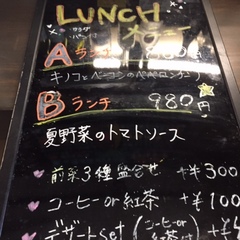 LUNCH
×= サラダ
パン付
Aランチ
キノコとベーコンのペペロンチーノ
Bランチ 980円
夏野菜のトマトソース
前菜3種盛合せ +¥300
コーヒー or 紅茶 +¥100
デザートset (コーヒー or 紅茶付)